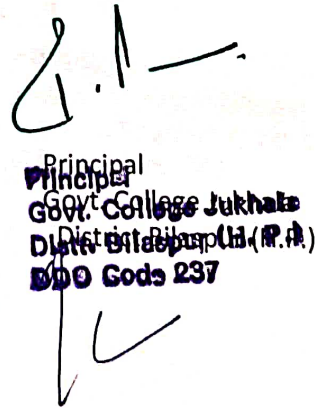 Principal
Govt. College Jukhala
District Bilaspur (H.P.)
Principal
Govt. College Jukhala
Distt. Bilaspur (H. P.)
DDO Code 237